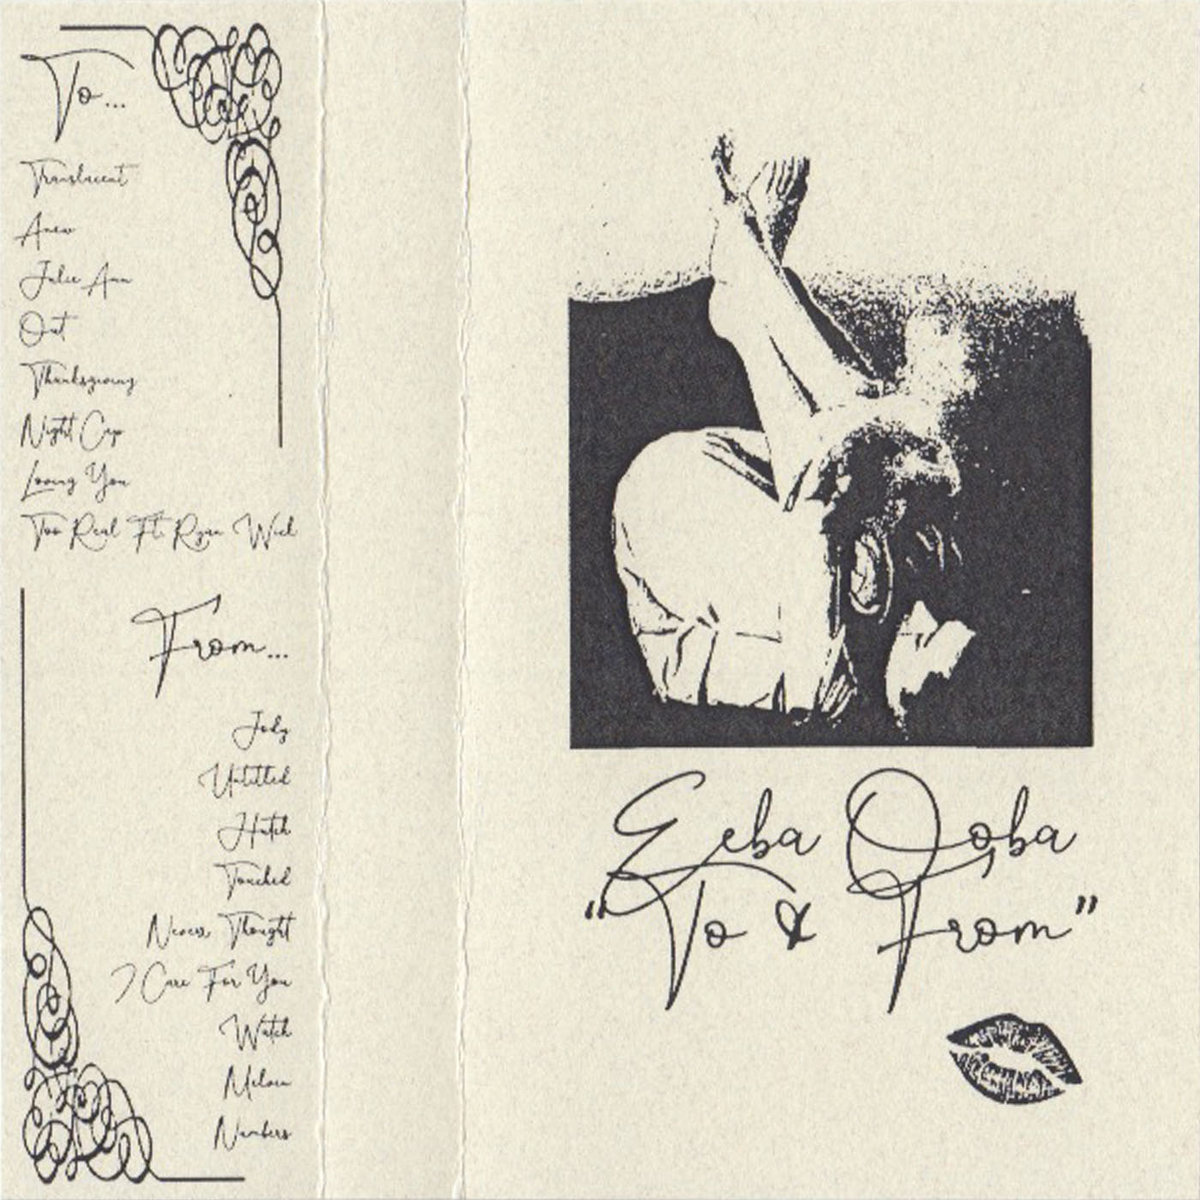 To...
Translucent
Anew
Julie Ann
Out
Thanksgiving
Night Cap
Loving You
Too Real Ft. Ryan Wiel
From...
Jody
Untitled
Hutch
Touched
Never Thought
I Care For You
Watch
Melain
Numbers
Eeba Ooba
"To & From"